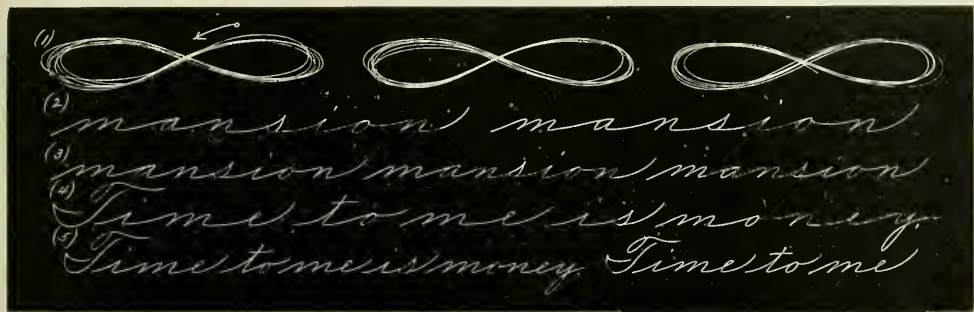 (1)
(2) mansion mansion
(3) mansion mansion mansion
(4) Time to me is money.
(5) Time to me is money Time to me